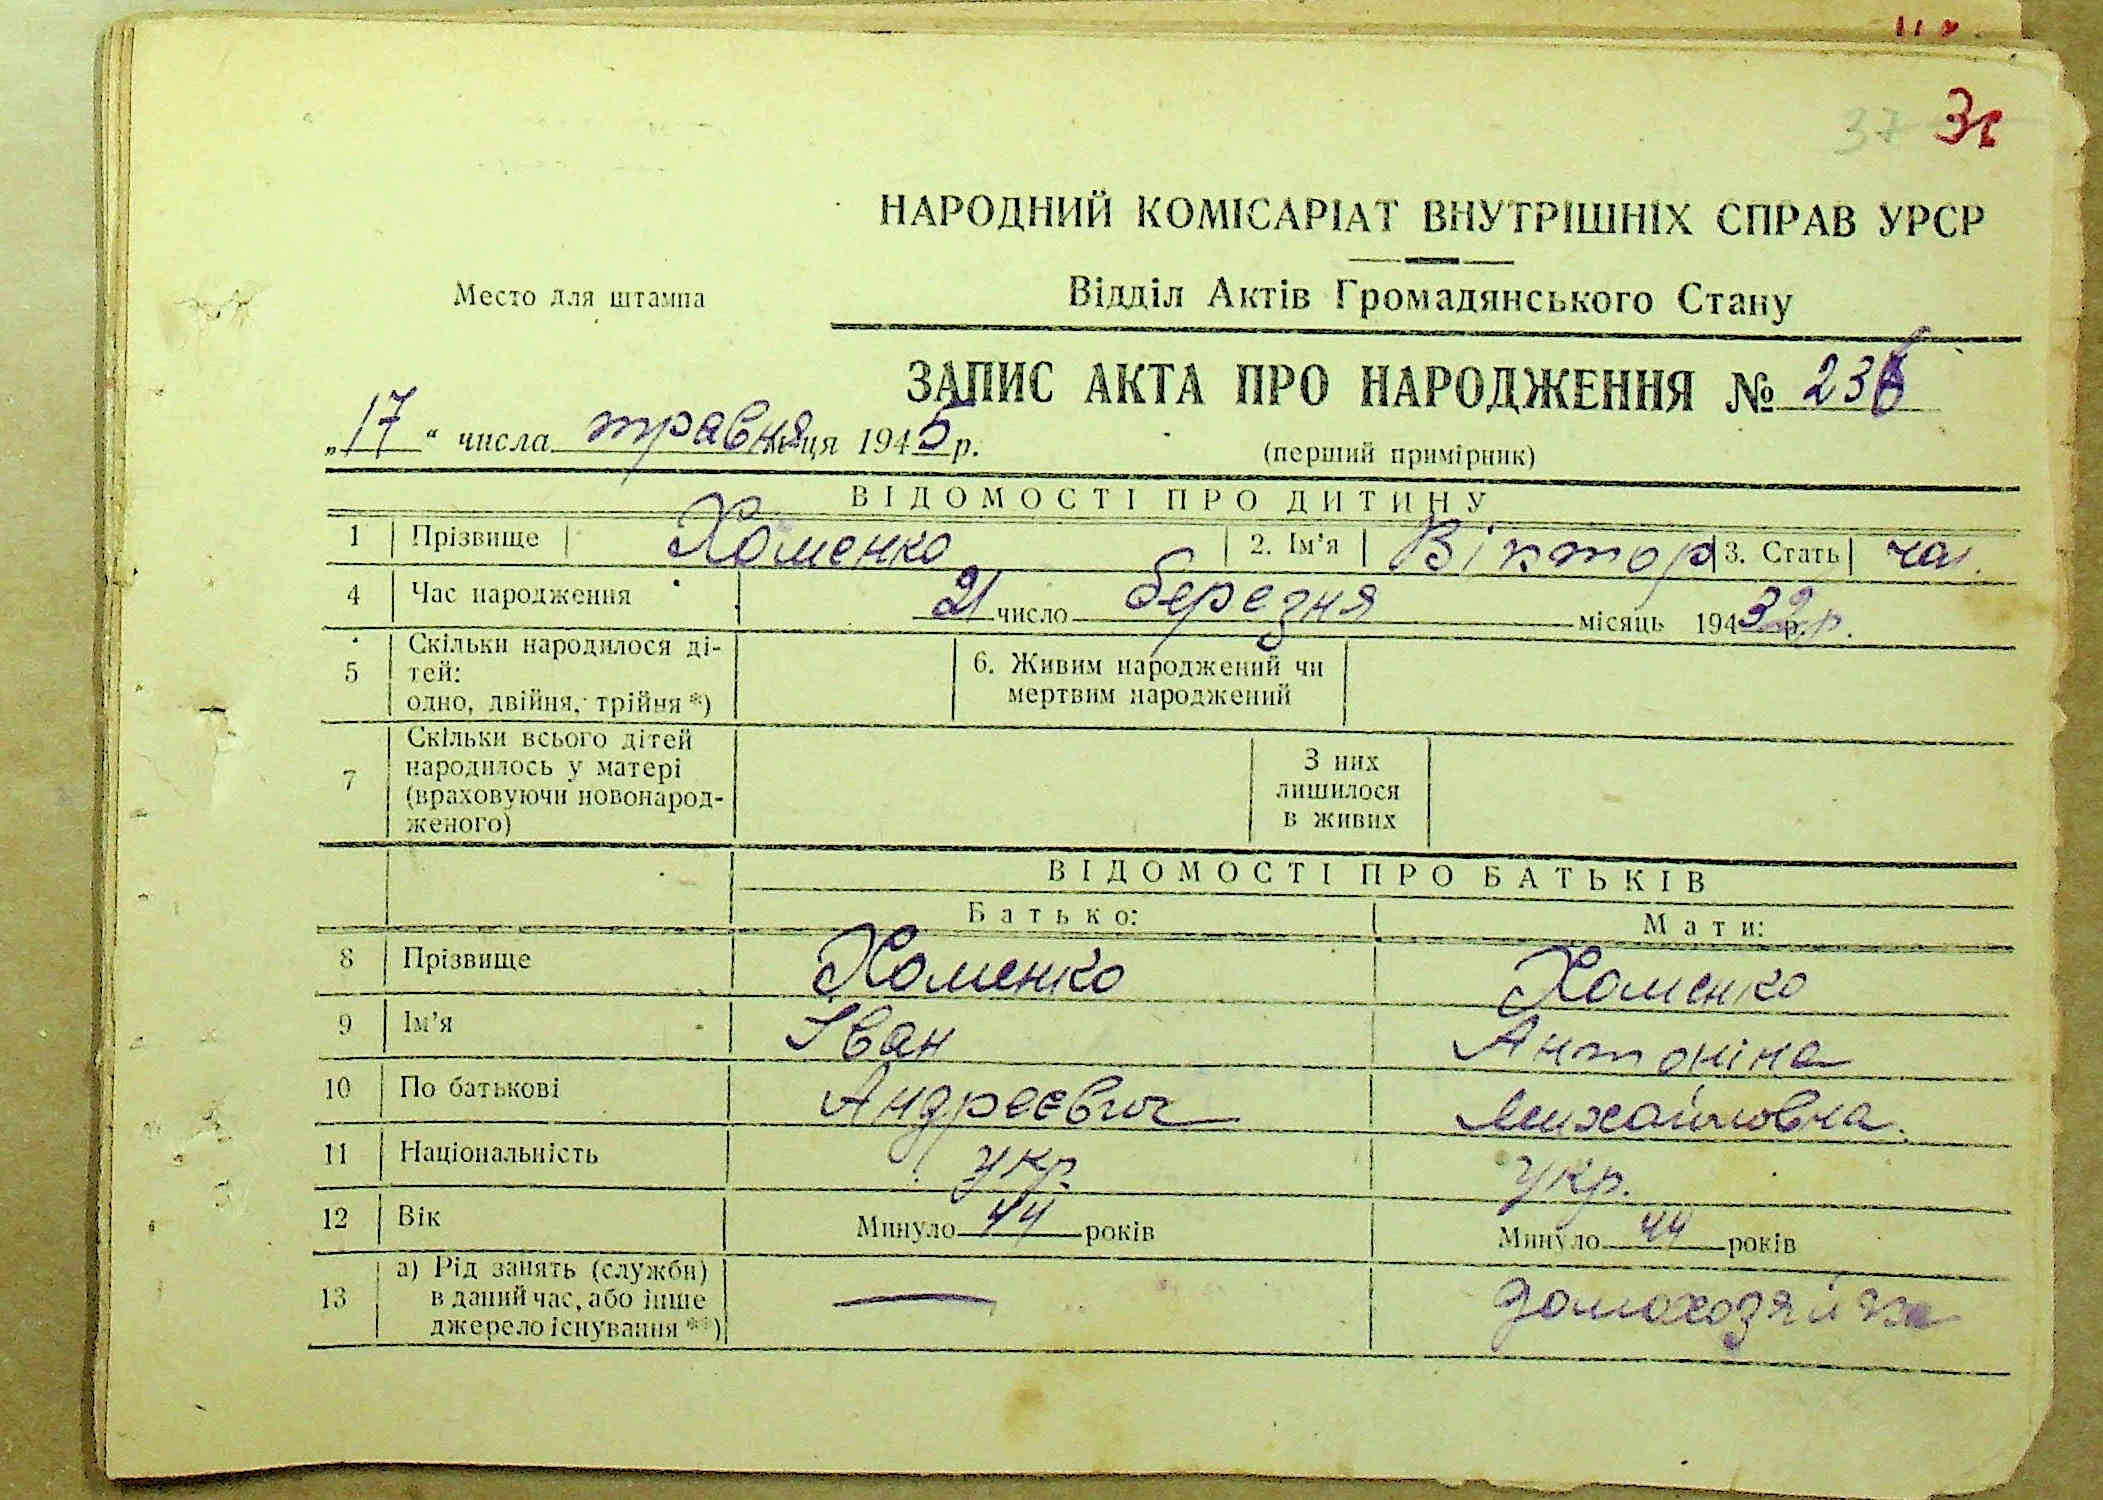 37
НАРОДНИЙ КОМІСАРІАТ ВНУТРІШНІХ СПРАВ УРСР
Место для штампа
Відділ Актів Громадянського Стану
ЗАПИС АКТА ПРО НАРОДЖЕННЯ № 236
„17“ числа травня м-ця 1945 р.
(перший примірник)
ВІДОМОСТІ ПРО ДИТИНУ
1 Прізвище Хоменко 2. Ім'я Віктор 3. Стать чол.
4 Час народження 21 число березня місяць 194 32 р.
5 Скільки народилося ді-
тей:
одно, двійня, трійня *)
6. Живим народжений чи
мертвим народжений
7 Скільки всього дітей
народилось у матері
(враховуючи новонарод-
женого)
З них
лишилося
в живих
ВІДОМОСТІ ПРО БАТЬКІВ
Батько: Мати:
8 Прізвище Хоменко Хоменко
9 Ім'я Іван Антоніна
10 По батькові Андреєвич Михайловна.
11 Національність укр. укр.
12 Вік Минуло 44 років Минуло 44 років
13 а) Рід занять (служби)
в даний час, або інше
джерело існування **)
— домохозяйка